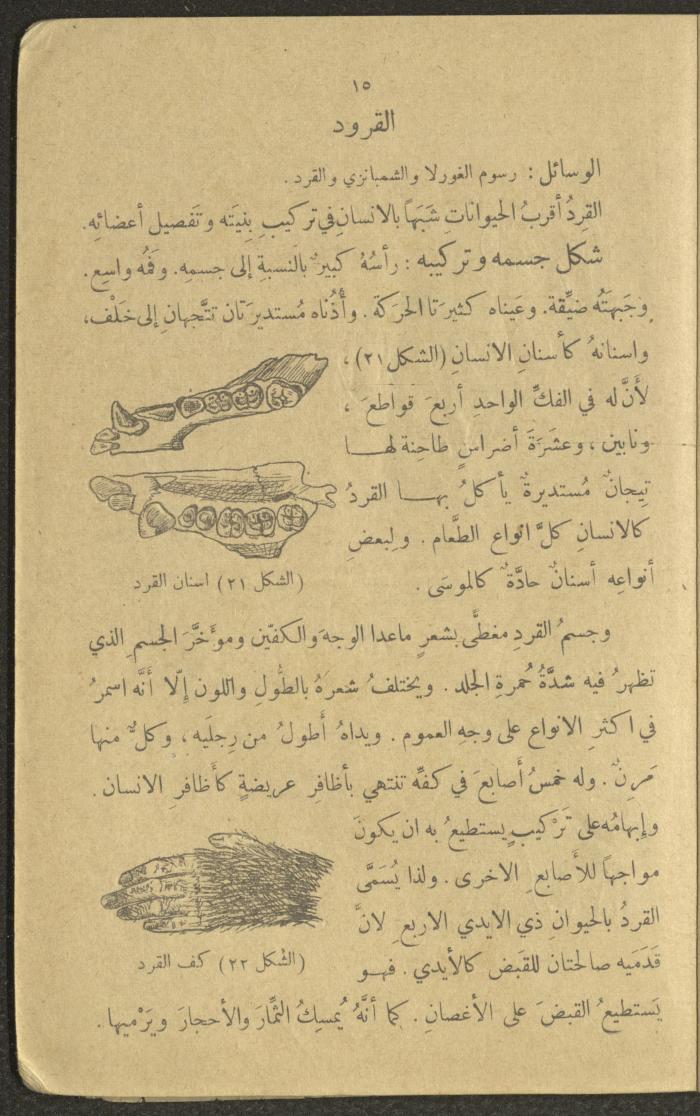 ١٥
القرود
الوسائل : رسوم الغورلا والشمبانزي والقرد .
القِردُ أقربُ الحيواناتِ شَبَهاً بالانسانِ في تركيبِ بِنيَته وتَفصيل أعضائِه.
شكل جسمه وتركيبه : رأسُهُ كَبيرٌ بالنسبةِ إلى جسمِه. وفَمُه واسِع.
وجَبهَتُه ضيِّقة. وعَيناه كثيرَتا الحرَكَة . وأُذُناه مُستديرَتان تتَّجهانِ إلى خَلْف،
واسنانهُ كأسنانِ الانسانِ (الشكل ٢١) ،
لأنَّ له في الفكِّ الواحدِ أربعَ قواطعَ ،
ونابين ، وعشَرَةَ أضراسٍ طاحِنة لهـا
تِيجانٌ مُستديرةٌ يأكلُ بهـا القردُ
كالانسانِ كلَّ انواع الطَّعام . ولِبعضِ
أنواعِه أسنانٌ حادَّةٌ كالموسَى .
(الشكل ٢١) اسنان القرد
وجسمُ القردِ مغطَّى بشعرٍ ماعدا الوجهَ والكفّين ومؤخَّرَ الجسمِ الذي
تظهرُ فيه شدَّةُ حُمرةِ الجلد . ويختلفُ شعرهُ بالطُّولِ واللون إلّا أنَّه اسمرُ
في اكثرِ الانواع على وجهِ العموم . ويداهُ أطولُ من رِجلَيه ، وكلٌّ منها
مَرِنٌ . وله خمسُ أصابعَ في كفِّه تنتهي بأظافرِ عريضةٍ كأظافرِ الانسان .
وإبهامُه على تَرْكيبٍ يستطيعُ به ان يكونَ
مواجهاً للأصابعِ الاخرى . ولذا يُسَمَّى
القردُ بالحيوانِ ذي الايدي الاربعِ لانَّ
قَدَمَيه صالحتان للقَبض كالأيدي . فهـو
(الشكل ٢٢) كف القرد
يَستطيعُ القبضَ على الأغصانِ . كما أنَّهُ يُمسِكُ الثِّمارَ والأحجارَ ويَرْميها .